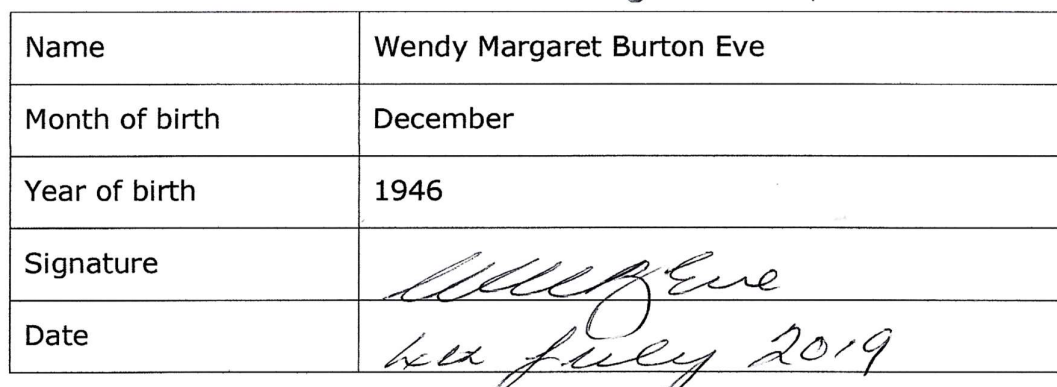 Name Wendy Margaret Burton Eve
Month of birth December
Year of birth 1946
Signature WMB Eve
Date July 2019